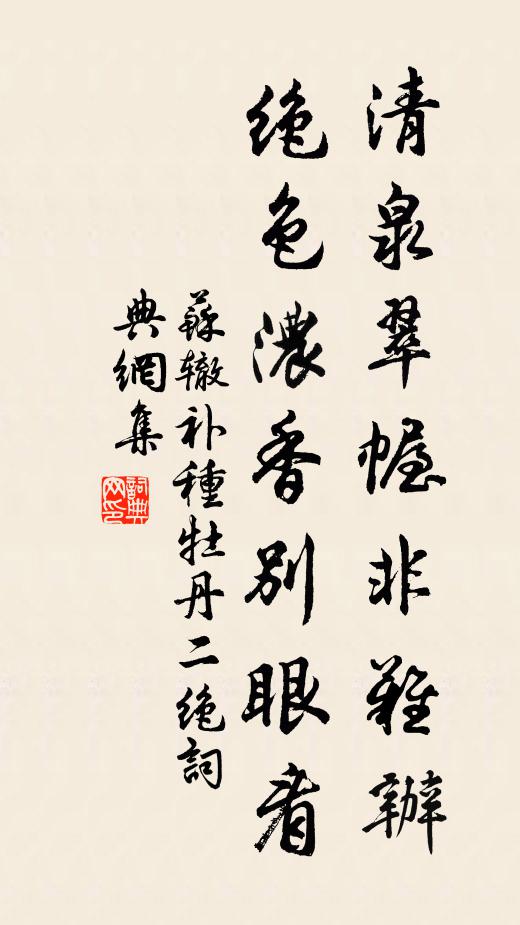 清泉翠幄非難辦
绝色濃香别眼看
蘇辙补種牡丹二绝詞
典網集
詞典网印